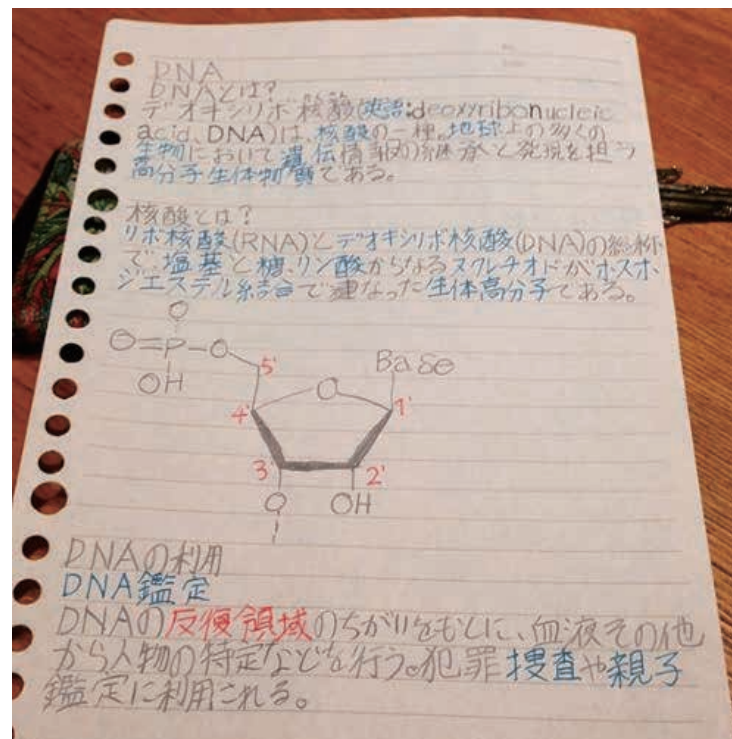 DNA
DNAとは?
デオキシリボ核酸(英語:deoxyribonucleic
acid、DNA)は、核酸の一種。地球上の多くの
生物において遺伝情報の継承と発現を担う
高分子生体物質である。
核酸とは?
リボ核酸(RNA)とデオキシリボ核酸(DNA)の総称
で、塩基と糖、リン酸からなるヌクレオチドがホスホ
ジエステル結合で連なった生体高分子である。
O
O=P-O
5'
Base
OH
O
4'
1'
3'
2'
O
OH
DNAの利用
DNA鑑定
DNAの反復領域のちがいをもとに、血液その他
から人物の特定などを行う。犯罪捜査や親子
鑑定に利用される。